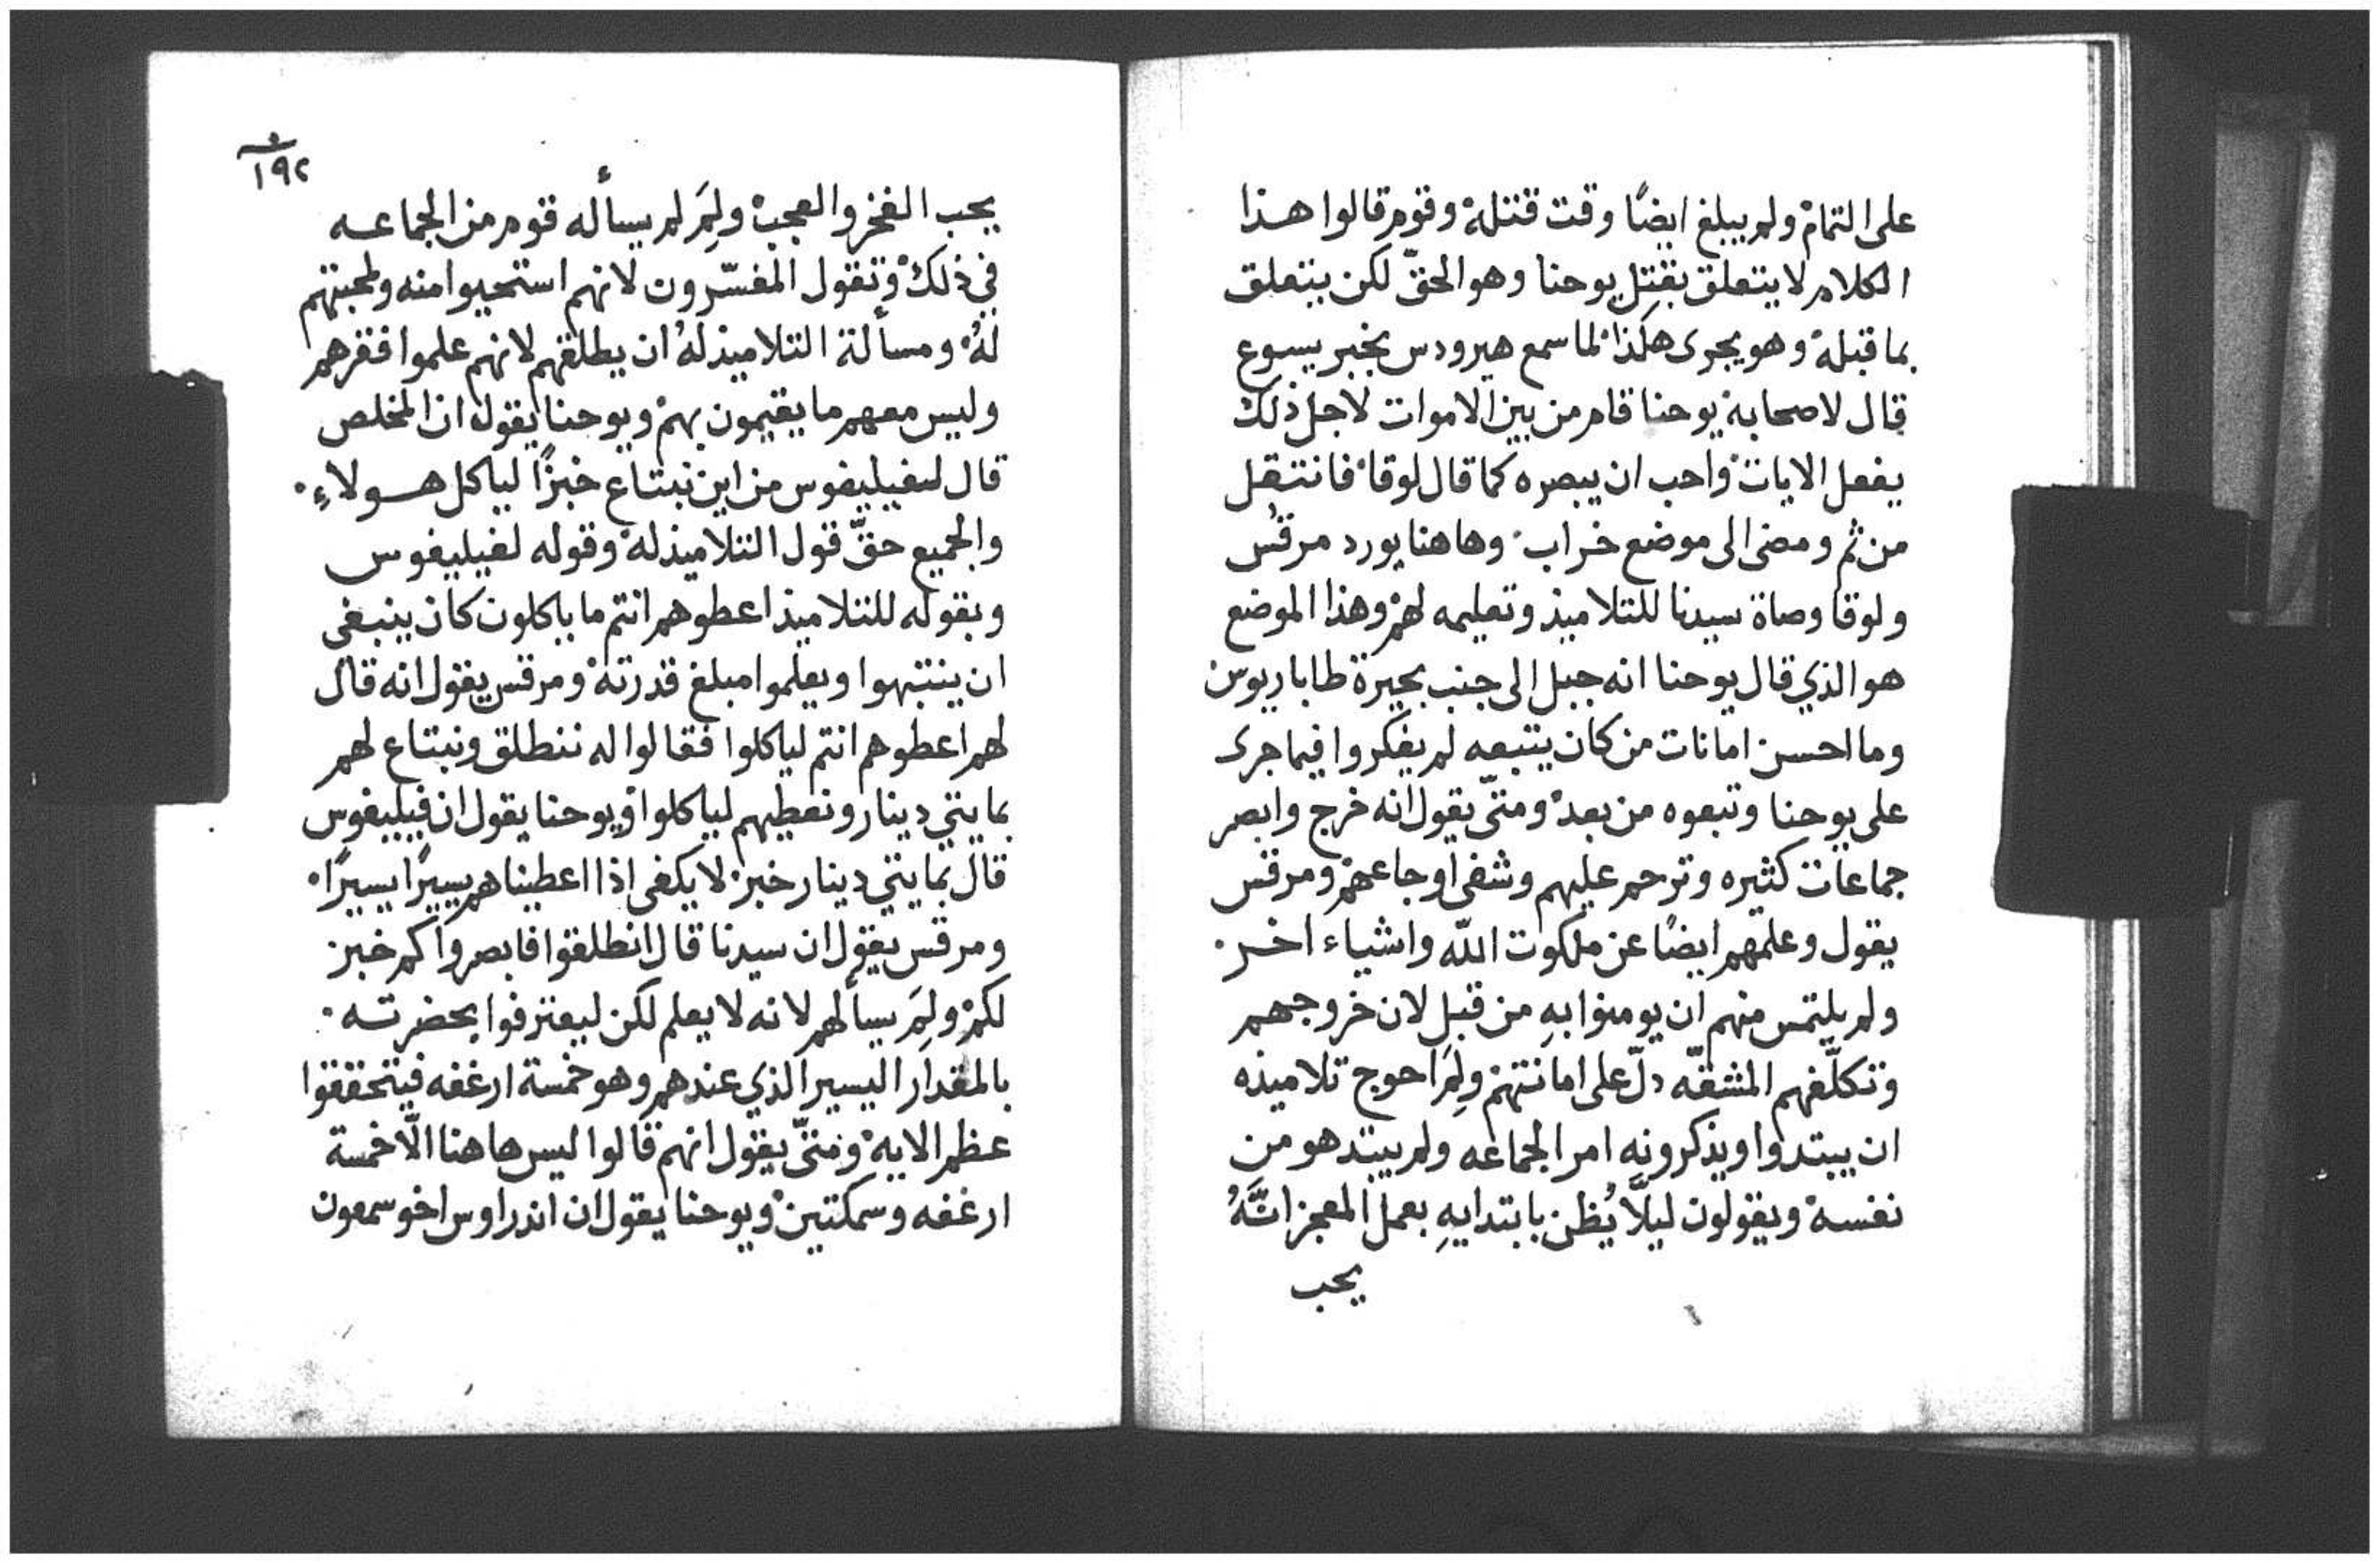 على التمام ولم يبلغ ايضًا وقت قتله وقوم قالوا هذا
الكلام لا يتعلق بقتل يوحنا وهو الحقّ لكن يتعلق
بما قبله وهو يجرى هكذا لما سمع هيرودس بخبر يسوع
قال لاصحابه يوحنا قام من بين الاموات لاجل ذلك
يفعل الايات واحب ان يبصره كما قال لوقا فانتقل
من ثم ومضى الى موضع خراب وهاهنا يورد مرقس
ولوقا وصاة سيدنا للتلاميذ وتعليمه لهم وهذا الموضع
هو الذي قال يوحنا انه جبل الى جنب بحيرة طاباريوس
وما احسن امانات من كان يتبعه لم يفكروا فيما جرى
على يوحنا وتبعوه من بعد ومتّى يقول انه خرج وابصر
جماعات كثيره وترحم عليهم وشفى اوجاعهم ومرقس
يقول وعلمهم ايضًا عن ملكوت اللّه واشياء اخر
ولم يلتمس منهم ان يومنوا بهِ من قبل لان خروجهم
وتكلّفهم المشقّه دلّ على امانتهم ولِمَ احوج تلاميذه
ان يبتدوا ويذكرونه امر الجماعه ولم يبتد هو من
نفسه ويقولون ليلّا يُظن بابتدايهِ بعمل المعجز انَّهُ
يحب
١٩٢
يحب الفخر والعجب ولِمَ لم يسأله قوم من الجماعه
في ذلك وتقول المفسّرون لانهم استحيوا منه ولمحبتهم
لهُ ومسألة التلاميذ لهُ ان يطلقهم لانهم علموا فقرهم
وليس معهم ما يقيمون بهم ويوحنا يقول ان المخلص
قال لفيليفوس من اين نبتاع خبزًا لياكل هولاءِ
والجميع حقّ قول التلاميذ له وقوله لفيليفوس
وبقوله للتلاميذ اعطوهم انتم ما ياكلون كان ينبغي
ان ينتبهوا ويعلموا مبلغ قدرته ومرقس يقول انه قال
لهم اعطوهم انتم لياكلوا فقالوا له ننطلق ونبتاع لهم
بمايتي دينار ونعطيهم لياكلوا ويوحنا يقول ان فيليفوس
قال بمايتي دينار خبز لا يكفى اذا اعطيناهم يسيرًا يسيرًا
ومرقس يقول ان سيدنا قال انطلقوا فابصروا كم خبز
لكم ولِمَ يسألهم لانه لا يعلم لكن ليعترفوا بحضرته
بالمقدار اليسير الذي عندهم وهو خمسة ارغفه فيتحققوا
عظم الايه ومتّى يقول انهم قالوا ليس هاهنا الّا خمسة
ارغفه وسمكتين ويوحنا يقول ان اندراوس اخو سمعون